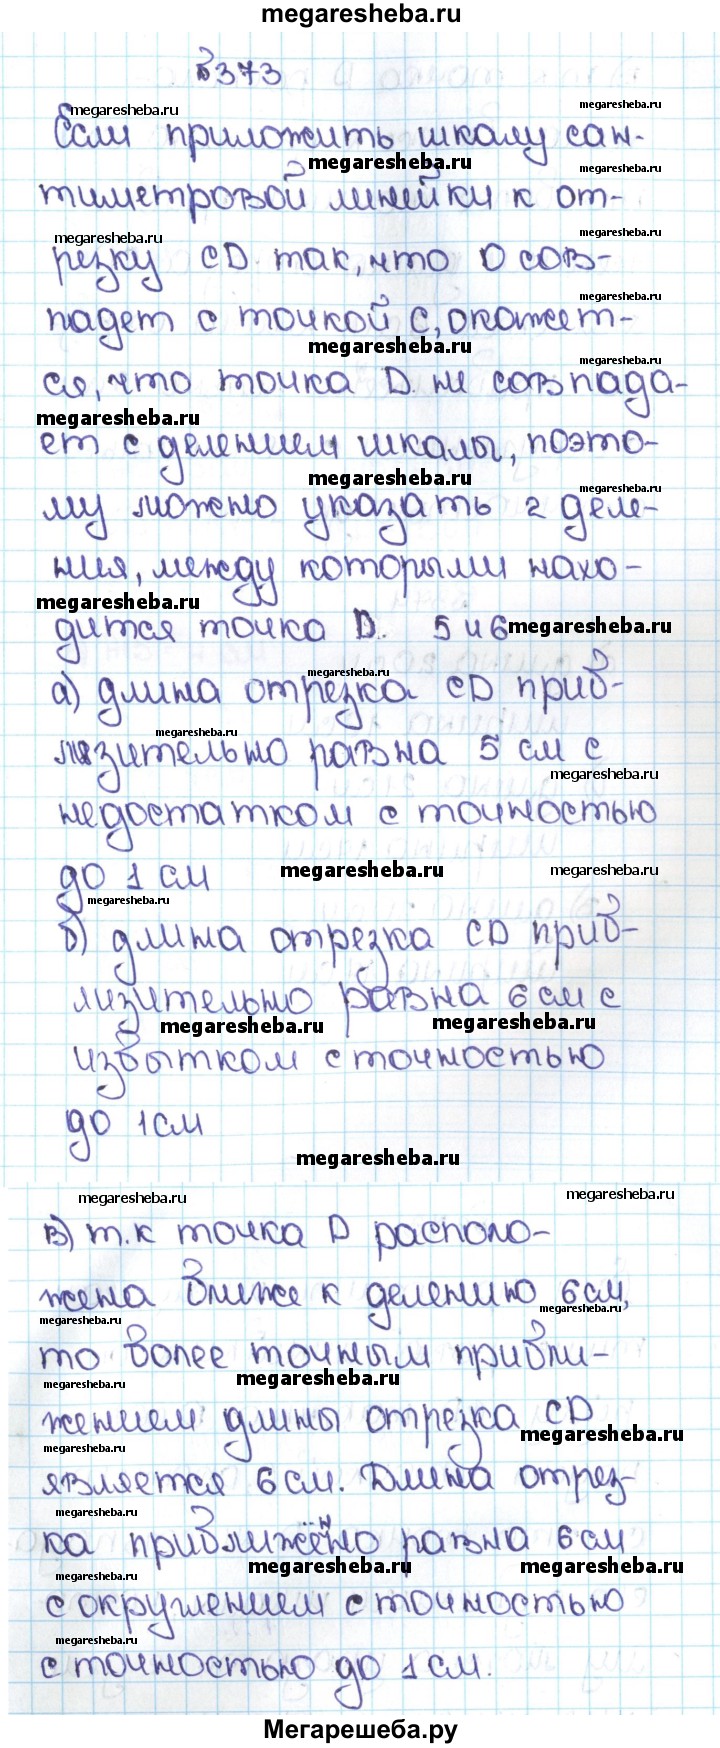 megaresheba.ru
№373
megaresheba.ru
megaresheba.ru
Если приложить шкалу сан-
megaresheba.ru
megaresheba.ru
тиметровой линейки к от-
megaresheba.ru
megaresheba.ru
резку CD так, что 0 сов-
megaresheba.ru
падет с точкой C, окажет-
megaresheba.ru
megaresheba.ru
ся, что точка D не совпада-
megaresheba.ru
megaresheba.ru
ет с делением шкалы, поэто-
megaresheba.ru
megaresheba.ru
му можно указать 2 деле-
megaresheba.ru
ния, между которыми нахо-
megaresheba.ru
дится точка D. 5 и 6 megaresheba.ru
megaresheba.ru
а) длина отрезка CD приб-
megaresheba.ru
лизительно равна 5 см с
megaresheba.ru
недостатком с точностью
до 1 см megaresheba.ru megaresheba.ru
megaresheba.ru
б) длина отрезка CD приб-
лизительно равна 6 см с
megaresheba.ru megaresheba.ru
избытком с точностью
до 1 см
megaresheba.ru
megaresheba.ru megaresheba.ru
в) т.к точка D располо-
жена ближе к делению 6 см,
megaresheba.ru megaresheba.ru
то более точным прибли-
megaresheba.ru megaresheba.ru
жением длины отрезка CD
megaresheba.ru megaresheba.ru
является 6 см. Длина отрез-
megaresheba.ru
ка приближённо равна 6 см
megaresheba.ru megaresheba.ru megaresheba.ru
с округлением с точностью
megaresheba.ru
с точностью до 1 см.
Мегарешеба.ру